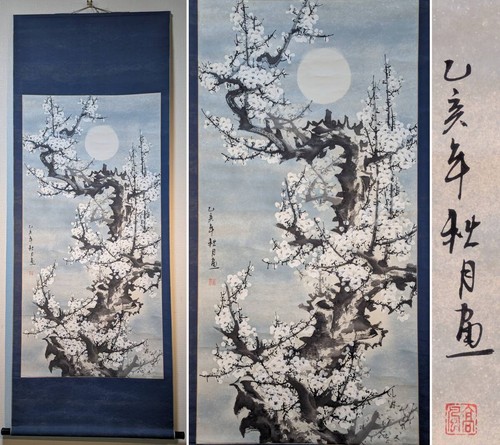 乙亥年秋月画